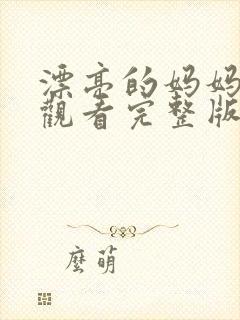 漂亮的妈妈
觀看完整版
麼萌